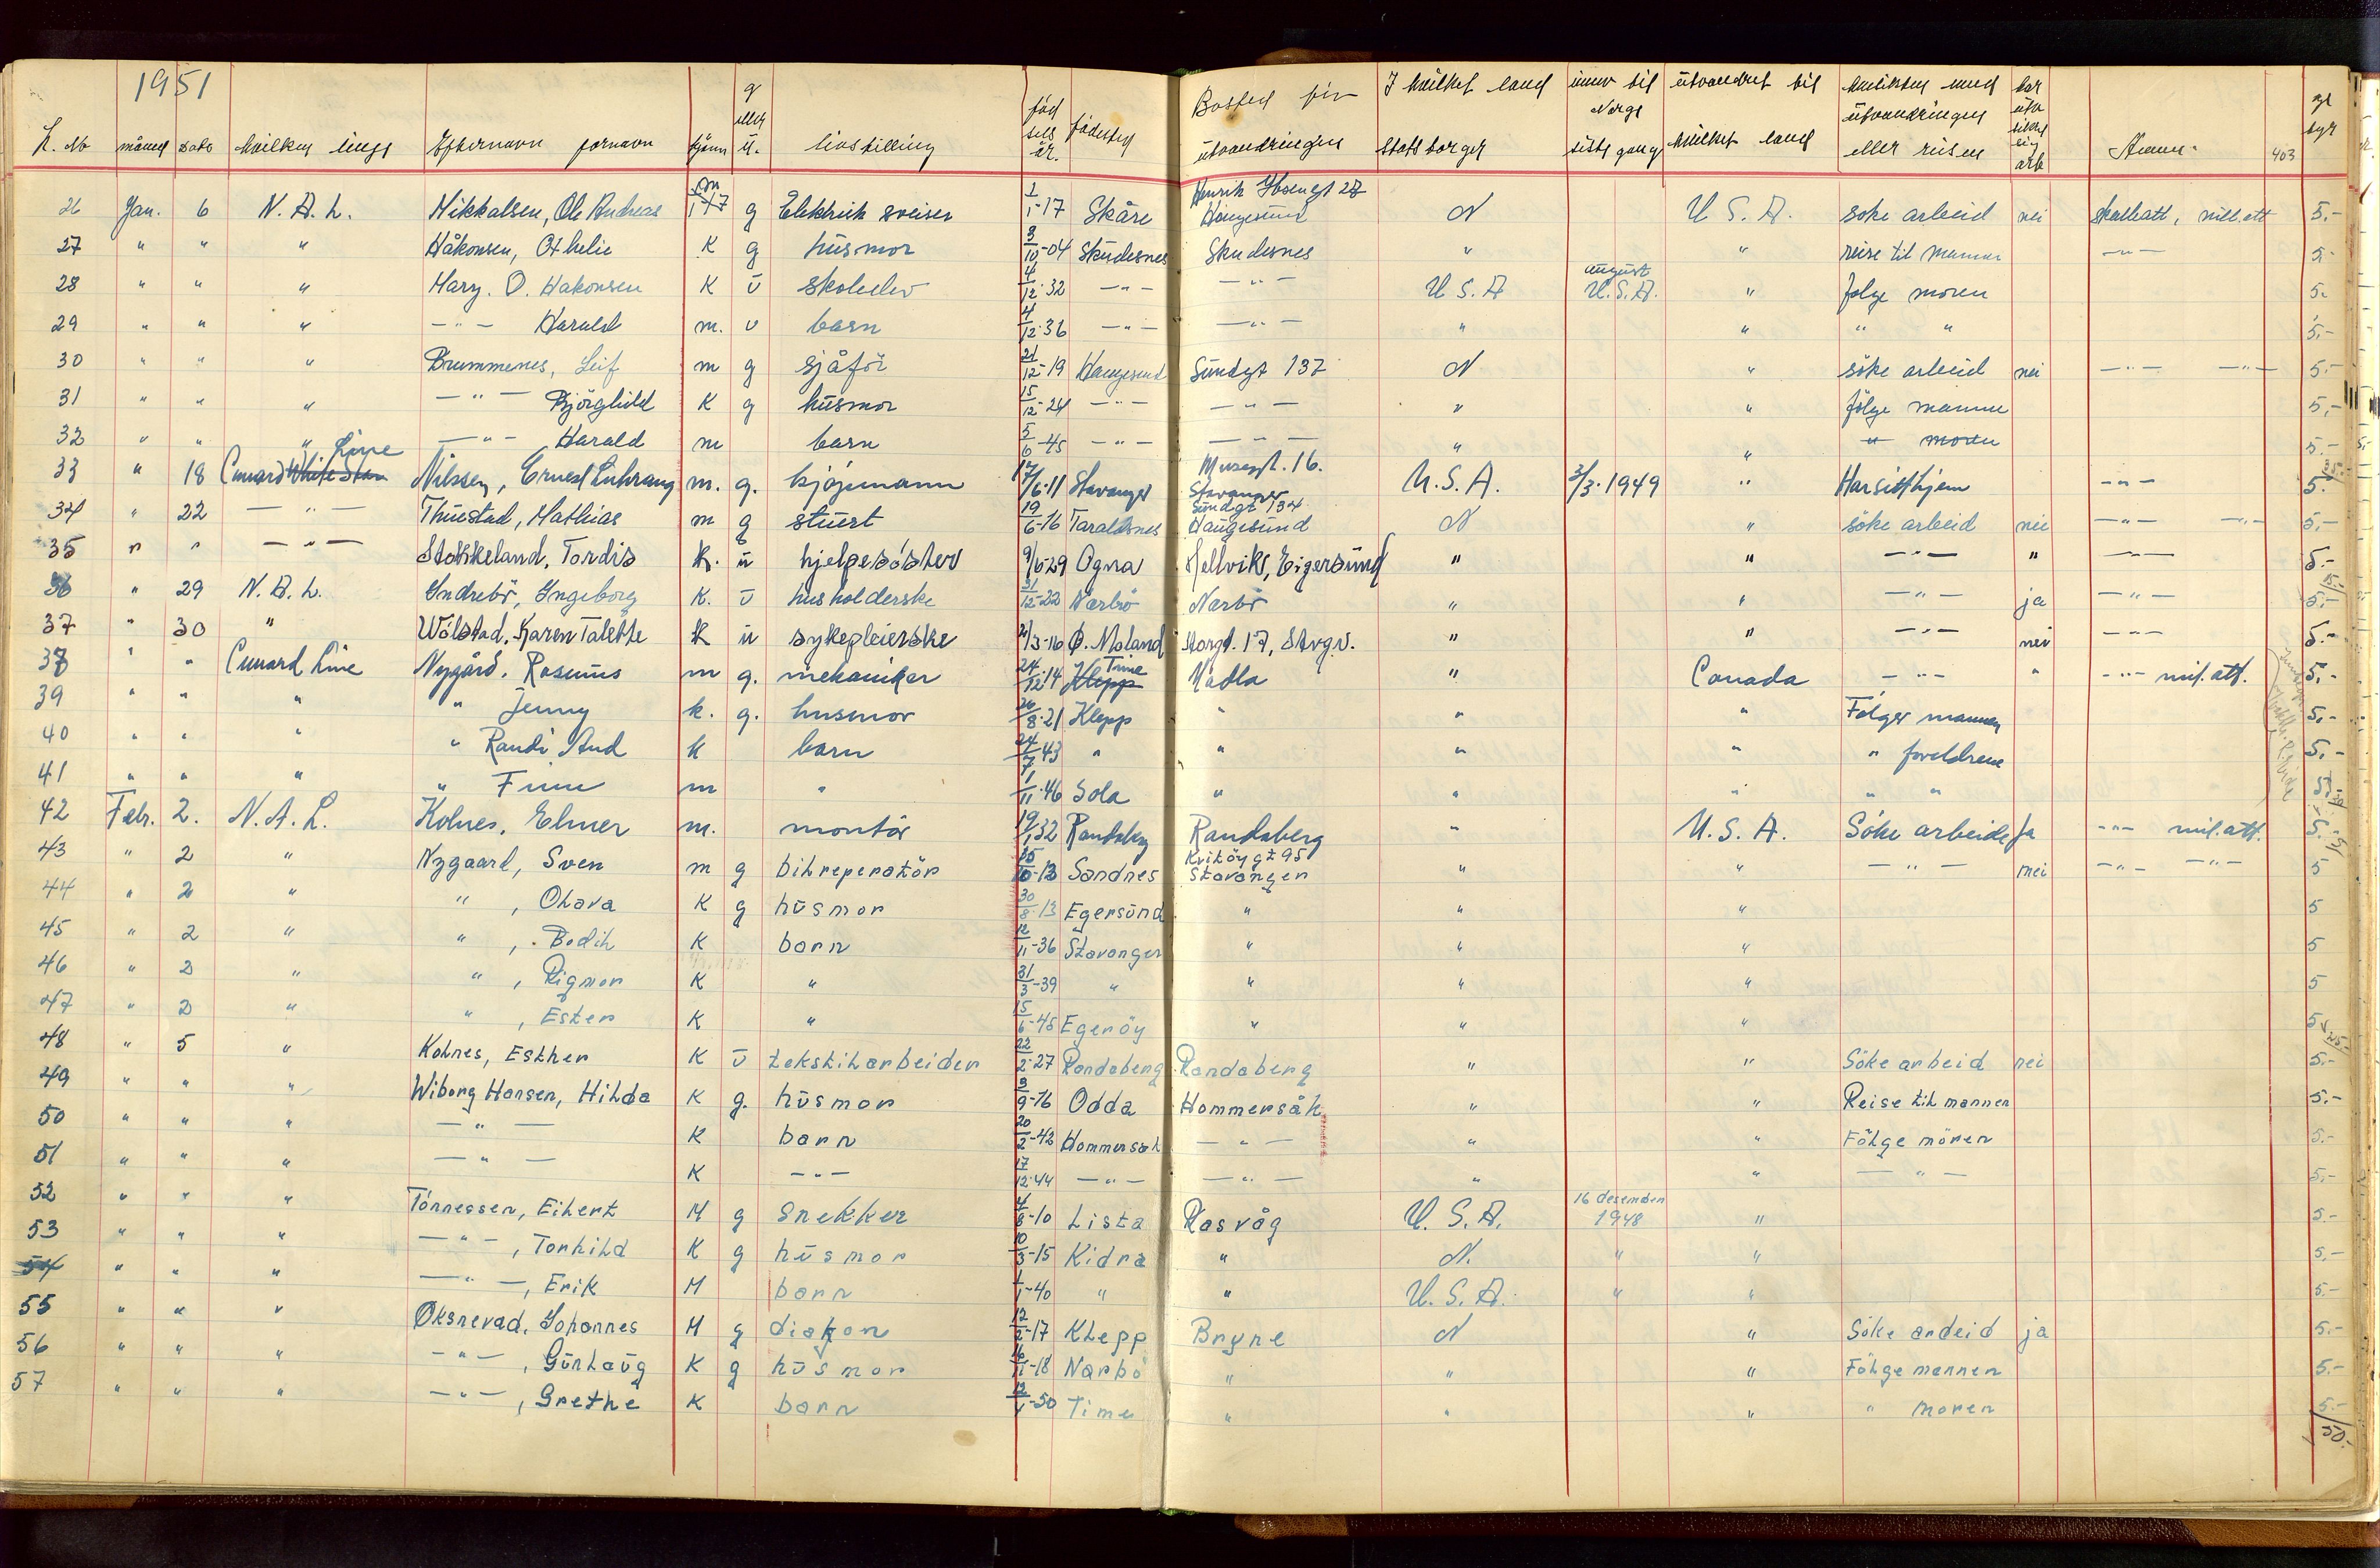 1951
L. No måned dato hvilken linje Efternavn fornavn kjønn g eller u. livstilling fødsels år. fødested Bosted før utvandringen I hvilket land statsborger innv til Norge siste gang utvandret til hvilket land hensikten med utvandringen eller reisen har utv sikret sig arb Anm. 403 gebyr
26 Jan. 6 N. A. L. Mikkalsen, Ole Andreas m g Elektrisk sveiser 1/1-17 Skåre Henrik Ibsengt 27 Haugesund N U S. A. søke arbeid nei skatteatt, mill.att 5.-
27 " " " Håkonsen, Othelie K g husmor 3/10-04 Skudesnes Skudesnes " " reise til mannen -"- 5.-
28 " " " Mary. O. Hakonsen K u skoleelev 4/12-32 -"- -"- U S. A august U.S.A. " følge moren 5.
29 " " " -"- Harald m. u barn 4/12-36 -"- -"- " " " " 5.-
30 " " " Brummenes, Leif m g sjåfør 21/12-19 Haugesund Sundgt 137 N " søke arbeid nei -"- -"- 5.-
31 " " " -"- Bjørghild K g husmor 15/12-24 -"- -"- " " følge mannen 5,-
32 " " " -"- Harald m barn 5/6-45 -"- -"- " " " moren 5.-
33 " 18 Cunard White Star Line Nilssen, Ernest m. g. kjøpmann 17/6-11 Stavanger Musegt. 16. Stavanger U.S.A. 3/3-1949 " Har sitt hjem -"- 5.-
34 " 22 -"- Thuestad, Mathias m g stuert 19/6-16 Taraldsnes Sundgt 134 Haugesund N " søke arbeid nei -"- -"- 5,-
35 " " -"- Stokkeland, Tordis k. u hjelpesøster 9/6-29 Ogna Hellvik, Eigersund " " -"- " -"- 5.-
36 " 29 N. A. L. Indrebø, Ingeborg K. u husholderske 31/12-22 Nærbø Nærbø " " -"- ja -"- 5.-
37 " 30 " Wólstad, Karen Talette K u sykepleierske 2/3-16 Ø. Moland Storgt. 17, Stvgr. " " -"- nei -"- 5.-
38 " " Cunard Line Nygård. Rasmus m g. mekaniker 24/12-14 Klepp Time Madla " Canada -"- " -"- mil.att. 5,-
39 " " " " Jenny k. g. husmor 26/8-21 Klepp " " " Følger mannen 5,-
40 " " " " Randi Aud k barn 24/7-43 " " " " " foreldrene 5.-
41 " " " " Finn m " 1/11-46 Sola " " " " "
42 Febr. 2. N. A. L. Kolnes, Elmer m. montør 19/1-32 Randaberg Randaberg " U. S. A. Søke arbeide Ja -"- mil.att. 5.-
43 " 2 " Nygaard, Sven m g bilreperatør 15/10-13 Sandnes Kvitøy gt 95 Stavanger " " -"- nei -"- -"- 5
44 " 2 " " , Olava K g husmor 30/8-13 Egersund " " " 5
45 " 2 " " , Bodil K barn 12/11-36 Stavanger " " " 5
46 " 2 " " , Rigmor K " 31/3-39 " " " " 5
47 " 2 " " , Ester K " 15/6-45 Egerøy " " " 5
48 " 5 " Kolnes, Esther K u tekstilarbeider 22/2-27 Randaberg Randaberg " " Søke arbeid nei 5.-
49 " " " Wiborg Hansen, Hilda K g. husmor 3/9-16 Odda Hommersåk " " Reise til mannen 5.-
50 " " " -"- K barn 20/2-42 Hommersåk -"- " " Følge moren 5.-
51 " " " -"- K -"- 17/12-44 -"- -"- " " -"- 5.-
52 " " " Tønnessen, Eilert M g Snekker 4/8-10 Lista Rasvåg U. S. A. 16 desember 1948 " 5.-
53 " " " -"-, Torhild K g husmor 10/3-15 Kidra " N. " " 5,-
54 " " " -"-, Erik M barn 1/1-40 " " U. S. A. " " 5.-
55 " " " Øksnevad, Johannes M g diakon 12/2-17 Klepp Bryne N " Søke arbeid ja 5.-
56 " " " -"-, Gunlaug K g husmor 16/1-18 Nærbø " " " Følge mannen 5.-
57 " " " -"-, Grethe K barn 12/1-50 Time " " " " moren 5.-
50.-